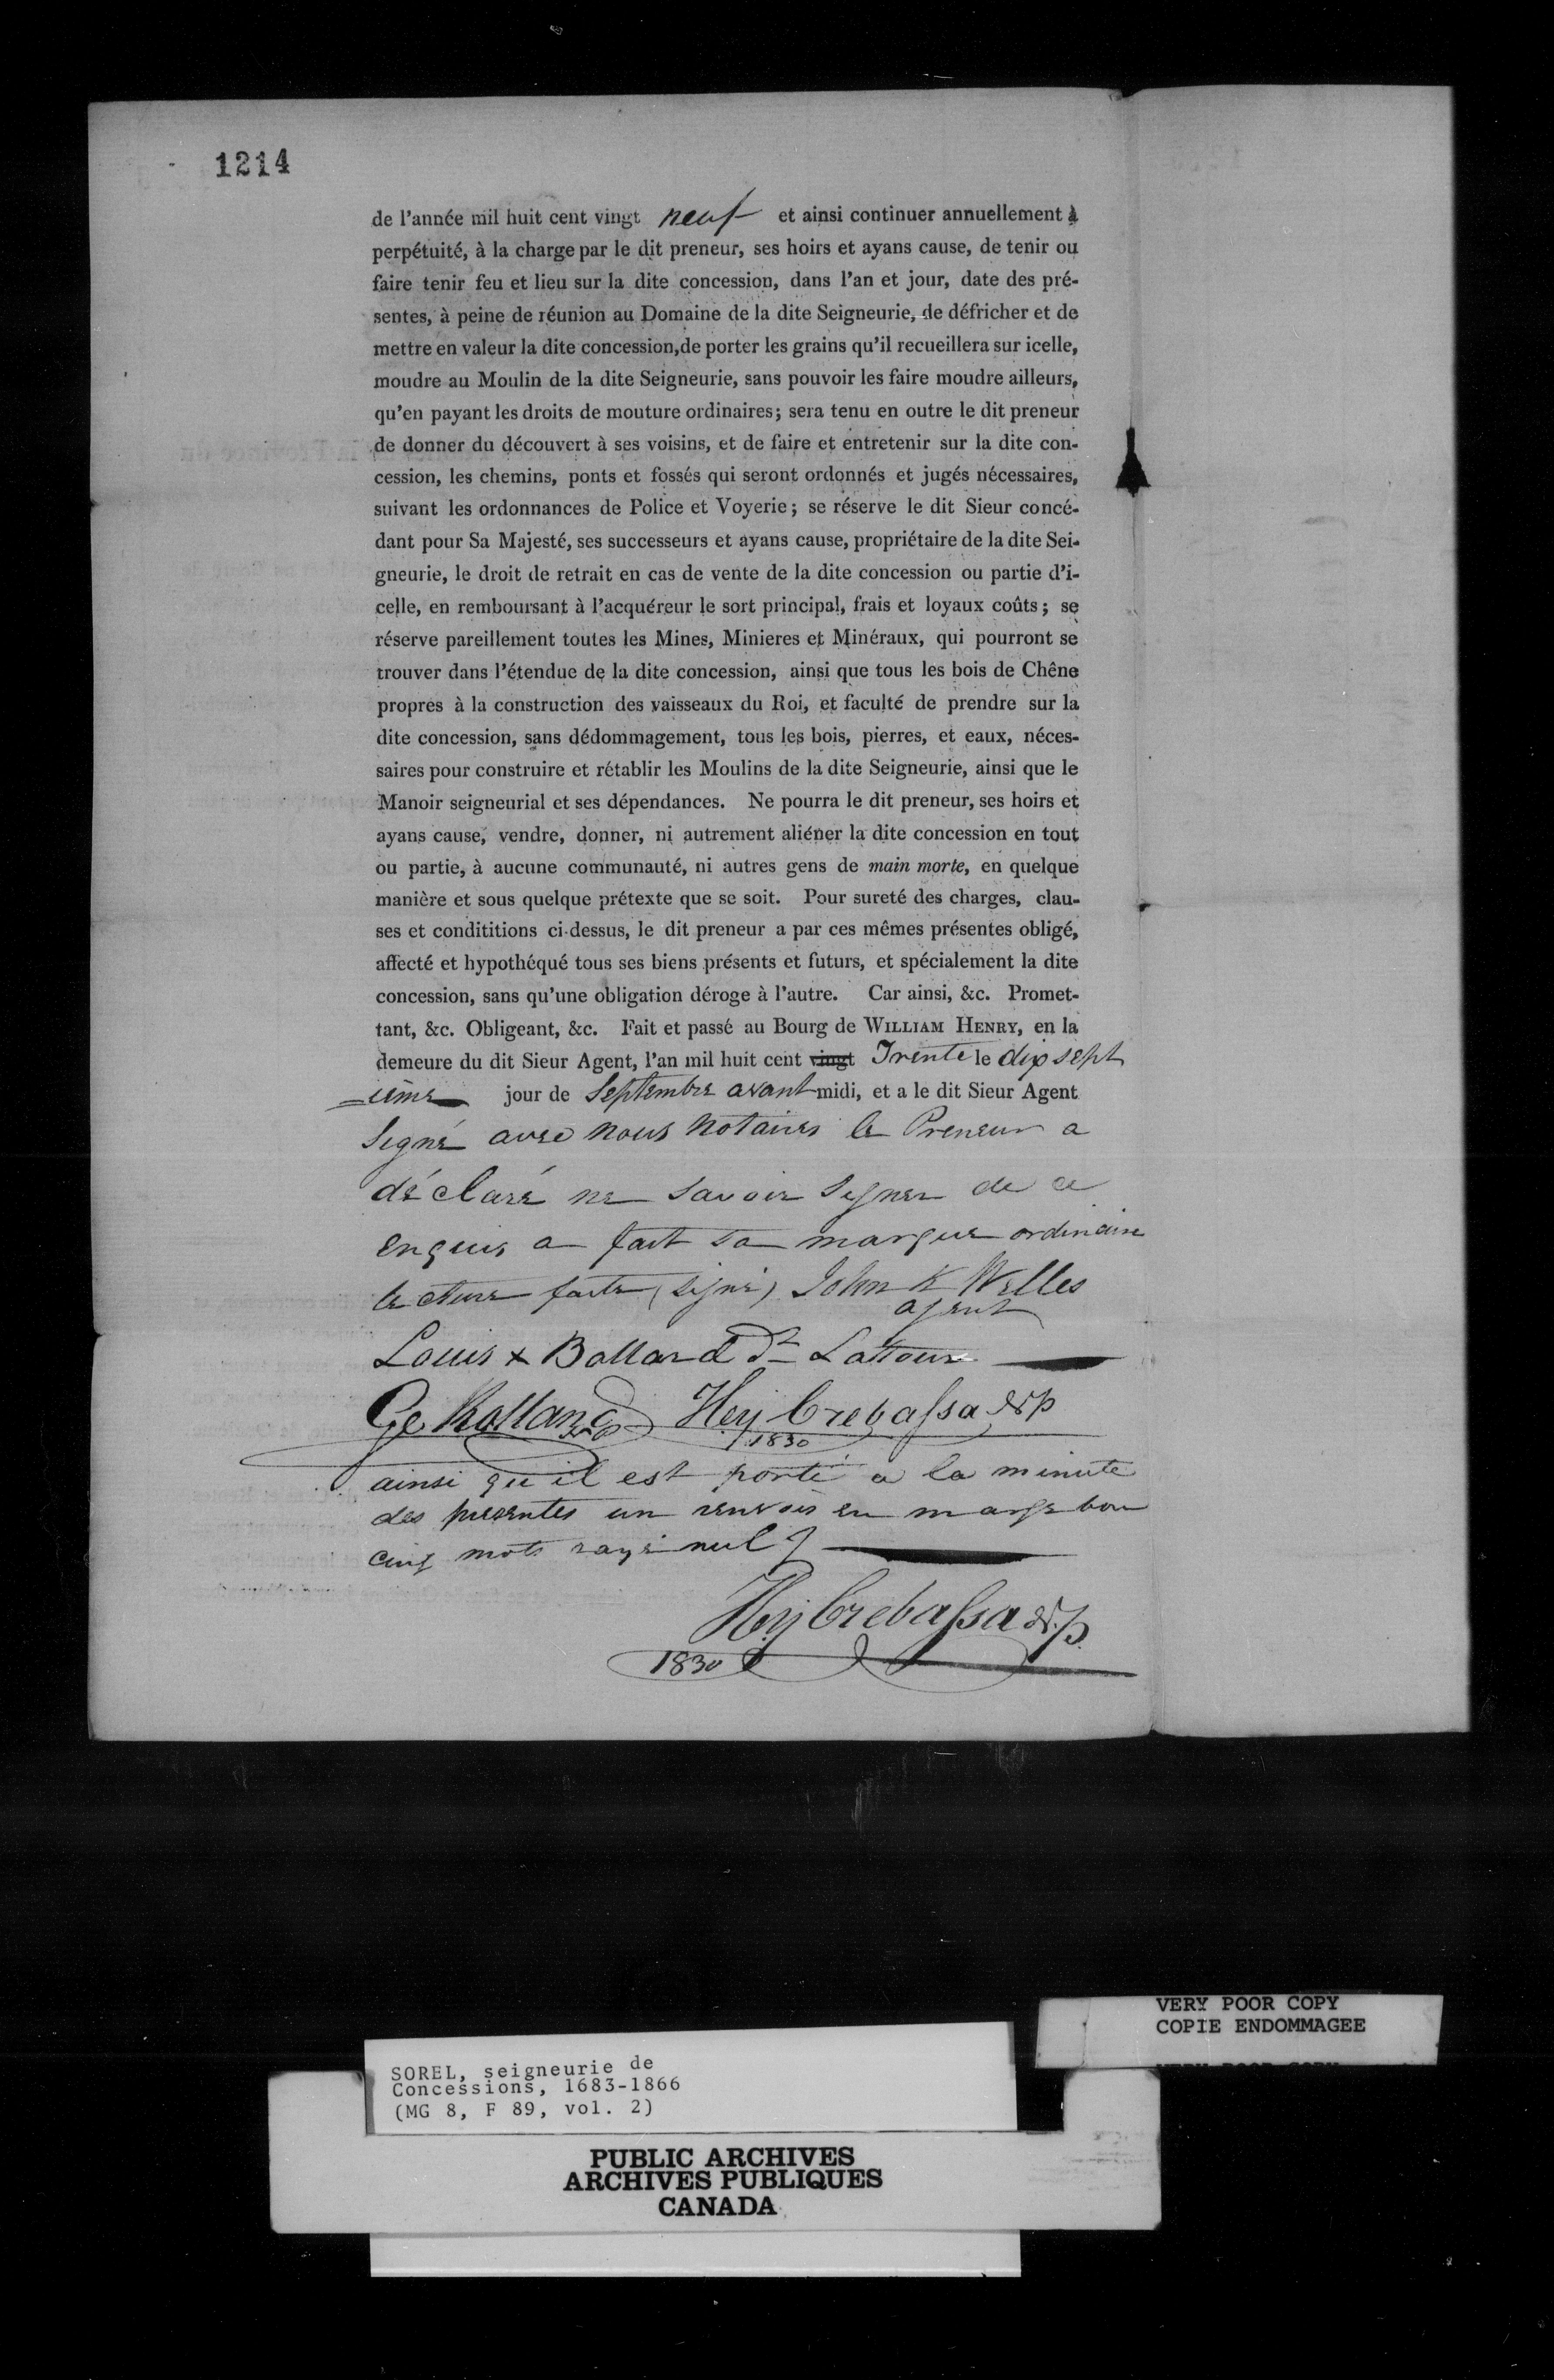 1214
de l'année mil huit cent vingt neuf et ainsi continuer annuellement à
perpétuité, à la charge par le dit preneur, ses hoirs et ayans cause, de tenir ou
faire tenir feu et lieu sur la dite concession, dans l'an et jour, date des pré-
sentes, à peine de réunion au Domaine de la dite Seigneurie, de défricher et de
mettre en valeur la dite concession,de porter les grains qu'il recueillera sur icelle,
moudre au Moulin de la dite Seigneurie, sans pouvoir les faire moudre ailleurs,
qu'en payant les droits de mouture ordinaires; sera tenu en outre le dit preneur
de donner du découvert à ses voisins, et de faire et entretenir sur la dite con-
cession, les chemins, ponts et fossés qui seront ordonnés et jugés nécessaires,
suivant les ordonnances de Police et Voyerie; se réserve le dit Sieur concé-
dant pour Sa Majesté, ses successeurs et ayans cause, propriétaire de la dite Sei-
gneurie, le droit de retrait en cas de vente de la dite concession ou partie d'i-
celle, en remboursant à l'acquéreur le sort principal, frais et loyaux coûts; se
réserve pareillement toutes les Mines, Minieres et Minéraux, qui pourront se
trouver dans l'étendue de la dite concession, ainsi que tous les bois de Chêne
propres à la construction des vaisseaux du Roi, et faculté de prendre sur la
dite concession, sans dédommagement, tous les bois, pierres, et eaux, néces-
saires pour construire et rétablir les Moulins de la dite Seigneurie, ainsi que le
Manoir seigneurial et ses dépendances. Ne pourra le dit preneur, ses hoirs et
ayans cause, vendre, donner, ni autrement aliéner la dite concession en tout
ou partie, à aucune communauté, ni autres gens de main morte, en quelque
manière et sous quelque prétexte que se soit. Pour sureté des charges, clau-
ses et condititions ci-dessus, le dit preneur a par ces mêmes présentes obligé,
affecté et hypothéqué tous ses biens présents et futurs, et spécialement la dite
concession, sans qu'une obligation déroge à l'autre. Car ainsi, &c. Promet-
tant, &c. Obligeant, &c. Fait et passé au Bourg de WILLIAM HENRY, en la
demeure du dit Sieur Agent, l'an mil huit cent vingt Trente le dix sept
=ième jour de Septembre avant midi, et a le dit Sieur Agent
Signé avec nous Notaires le Preneur a
déclaré ne savoir signer de ce
enquis a fait sa marque ordinaire
lecture faite (signé) John K Welles
agent
Louis x Dt Latour
Hey Crebassa NP
1830
ainsi qu'il est porté a la minute
des presentes un renvois en marge bon
cinq mots rayé nul
Hey Crebassa N.P.
1830
VERY POOR COPY
COPIE ENDOMMAGEE
SOREL, seigneurie de
Concessions, 1683-1866
(MG 8, F 89, vol. 2)
PUBLIC ARCHIVES
ARCHIVES PUBLIQUES
CANADA